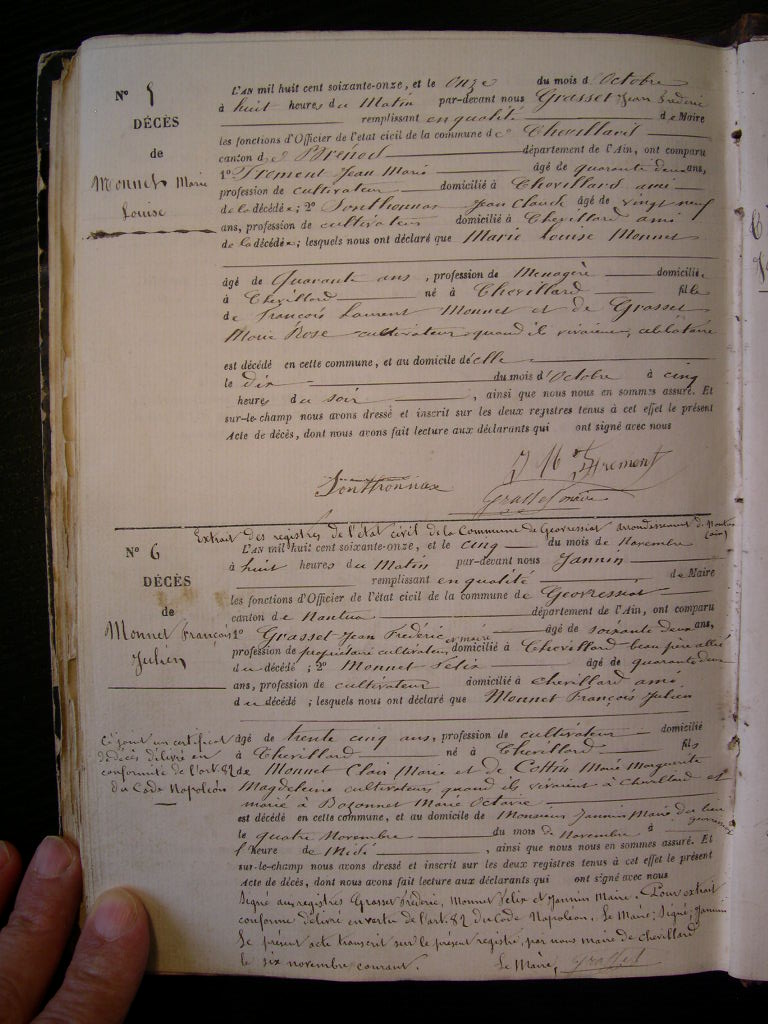 N° 5
DÉCÈS
de
Monnet Marie
Louise
L'AN mil huit cent soixante-onze, et le onze du mois d'Octobre
à huit heures du Matin par-devant nous Grasset Jean Frédéric
remplissant en qualité de Maire
les fonctions d'Officier de l'état civil de la commune de Chevillard
canton de Brénod département de l'Ain, ont comparu
1° Tremont Jean Marie âgé de quarante deux ans,
profession de cultivateur domicilié à Chevillard ami
de la décédée; 2° Sonthonnax Jean Claude âgé de vingt neuf
ans, profession de cultivateur domicilié à Chevillard ami
de la décédée; lesquels nous ont déclaré que Marie Louise Monnet
âgé de Quarante ans, profession de Menagère domicilié
à Chevillard né à Chevillard fille
de François Laurent Monnet et de Grasset
Marie Rose cultivateurs quand ils vivaient, célibataire
est décédé en cette commune, et au domicile d'elle
le dix du mois d'Octobre à cinq
heures du soir, ainsi que nous nous en sommes assuré. Et
sur-le-champ nous avons dressé et inscrit sur les deux registres tenus à cet effet le présent
Acte de décès, dont nous avons fait lecture aux déclarants qui ont signé avec nous
J M Tremont
Sonthonnax
Grasset maire
Extrait des registres de l'état civil de la Commune de Geovressiat arrondissement de Nantua
(ain)
N° 6
DÉCÈS
de
Monnet François
Julien
L'AN mil huit cent soixante-onze, et le cinq du mois de Novembre
à huit heures du Matin par-devant nous Jannin
remplissant en qualité de Maire
les fonctions d'Officier de l'état civil de la commune de Geovressiat
canton de Nantua département de l'Ain, ont comparu
1° Grasset Jean Frédéric et maire âgé de soixante deux ans,
profession de propriétaire cultivateur domicilié à Chevillard beau père allié
du décédé; 2° Monnet Félix âgé de quarante deux
ans, profession de cultivateur domicilié à chevillard ami
du décédé; lesquels nous ont déclaré que Monnet François Julien
âgé de trente cinq ans, profession de cultivateur domicilié
à Chevillard né à Chevillard fils
de Monnet Clair Marie et de Cottin Marie Marguerite
Magdeleine cultivateurs quand ils vivaient à Chevillard et
marié à Bozonnet Marie Octavie
Ci joint un certificat
de décès délivré en
conformité de l'art. 82
du Code Napoléon
est décédé en cette commune, et au domicile de Monsieur Jannin Maire du lieu
le quatre Novembre du mois de Novembre à
l'heure de Midi, ainsi que nous nous en sommes assuré. Et
sur-le-champ nous avons dressé et inscrit sur les deux registres tenus à cet effet le présent
Acte de décès, dont nous avons fait lecture aux déclarants qui ont signé avec nous
Signé aux registres Grasset Frédéric, Monnet Félix et Jannin Maire. Pour extrait
conforme délivré en vertu de l'art. 82 du Code Napoléon. Le Maire; Signé; Jannin
Le présent acte transcrit sur le présent registre, par nous maire de chevillard
le six novembre courant. Le Maire, Grasset